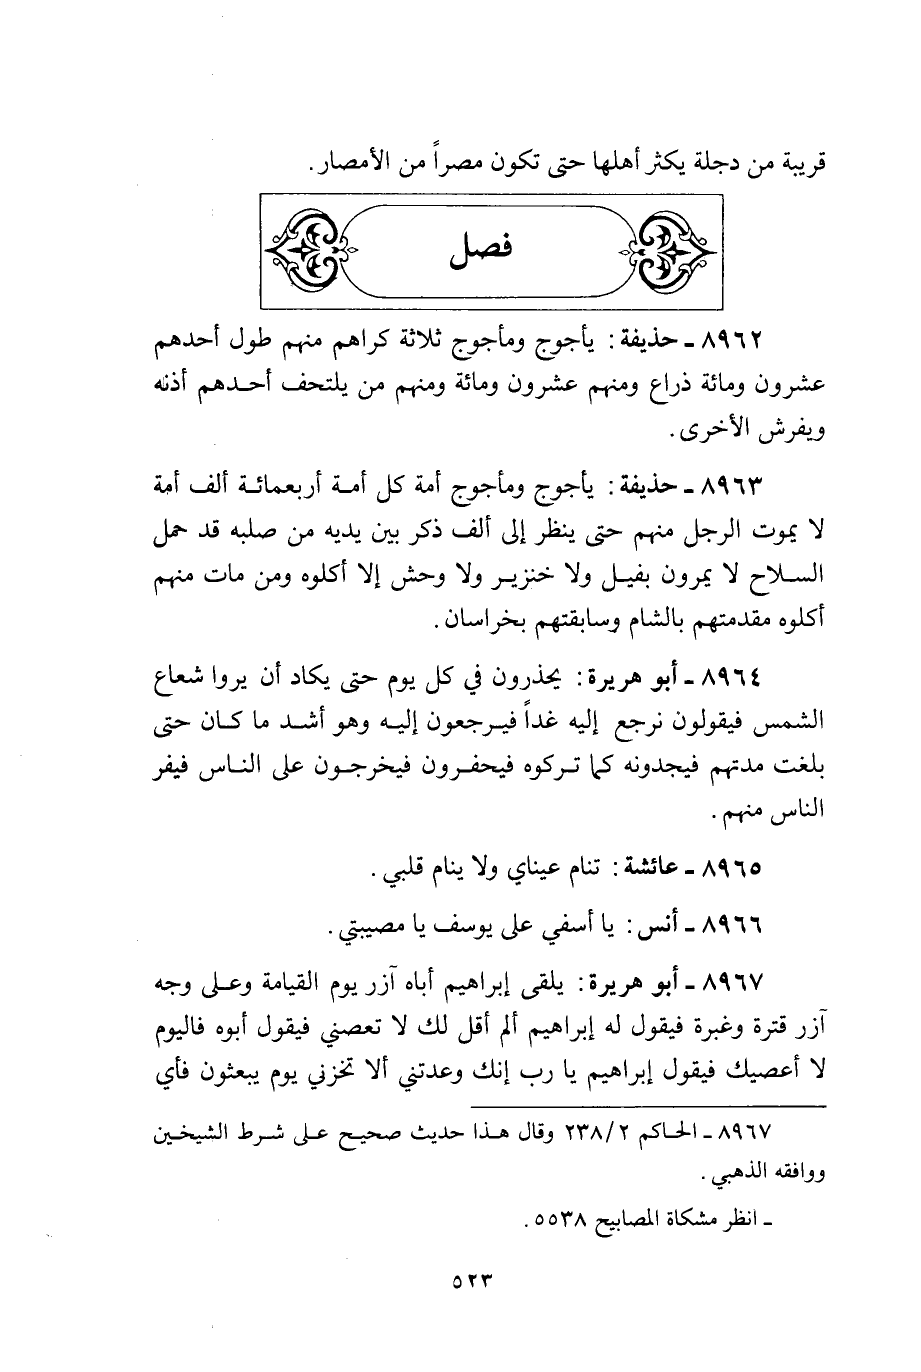 قريبة من دجلة يكثر أهلها حتى تكون مصراً من الأمصار.
فصل
٨٩٦٢ ـ حذيفة: يأجوج ومأجوج ثلاثة كراهم منهم طول أحدهم
عشرون ومائة ذراع ومنهم عشرون ومائة ومنهم من يلتحف أحدهم أذنه
ويفرش الأخرى.
٨٩٦٣ ـ حذيفة: يأجوج ومأجوج أمة كل أمة أربعمائة ألف أمة
لا يموت الرجل منهم حتى ينظر إلى ألف ذكر بين يديه من صلبه قد حمل
السلاح لا يمرون بفيل ولا خنزير ولا وحش إلا أكلوه ومن مات منهم
أكلوه مقدمتهم بالشام وسابقتهم بخراسان.
٨٩٦٤ ـ أبو هريرة: يحذرون في كل يوم حتى يكاد أن يروا شعاع
الشمس فيقولون نرجع إليه غداً فيرجعون إليه وهو أشد ما كان حتى
بلغت مدتهم فيجدونه كما تركوه فيحفرون فيخرجون على الناس فيفر
الناس منهم.
٨٩٦٥ ـ عائشة: تنام عيناي ولا ينام قلبي.
٨٩٦٦ ـ أنس: يا أسفي على يوسف يا مصيبتي.
٨٩٦٧ ـ أبو هريرة: يلقى إبراهيم أباه آزر يوم القيامة وعلى وجه
آزر قترة وغبرة فيقول له إبراهيم ألم أقل لك لا تعصني فيقول أبوه فاليوم
لا أعصيك فيقول إبراهيم يا رب إنك وعدتني ألا تخزني يوم يبعثون فأي
٨٩٦٧ ـ الحاكم ٢/ ٢٣٨ وقال هذا حديث صحيح على شرط الشيخين
ووافقه الذهبي.
ـ انظر مشكاة المصابيح ٥٥٣٨.
٥٢٣